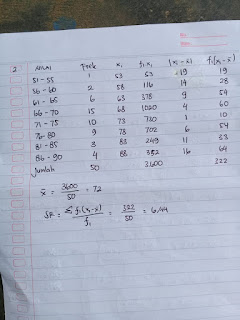 2 Nilai Frek xi fi xi |xi - x̄| fi |xi - x̄|
51 - 55 1 53 53 19 19
56 - 60 2 58 116 14 28
61 - 65 6 63 378 9 54
66 - 70 15 68 1020 4 60
71 - 75 10 73 730 1 10
76 - 80 9 78 702 6 54
81 - 85 3 83 249 11 33
86 - 90 4 88 352 16 64
Jumlah 50 3.600 322
x̄ = 3600 / 50 = 72
SR = Σ fi |xi - x̄| / fi = 322 / 50 = 6,44